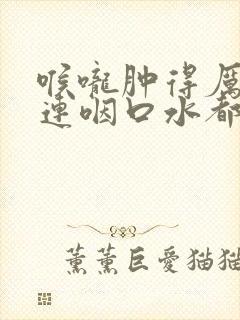 喉嚨肿得厉
连咽口水都
薰薰巨愛猫猫